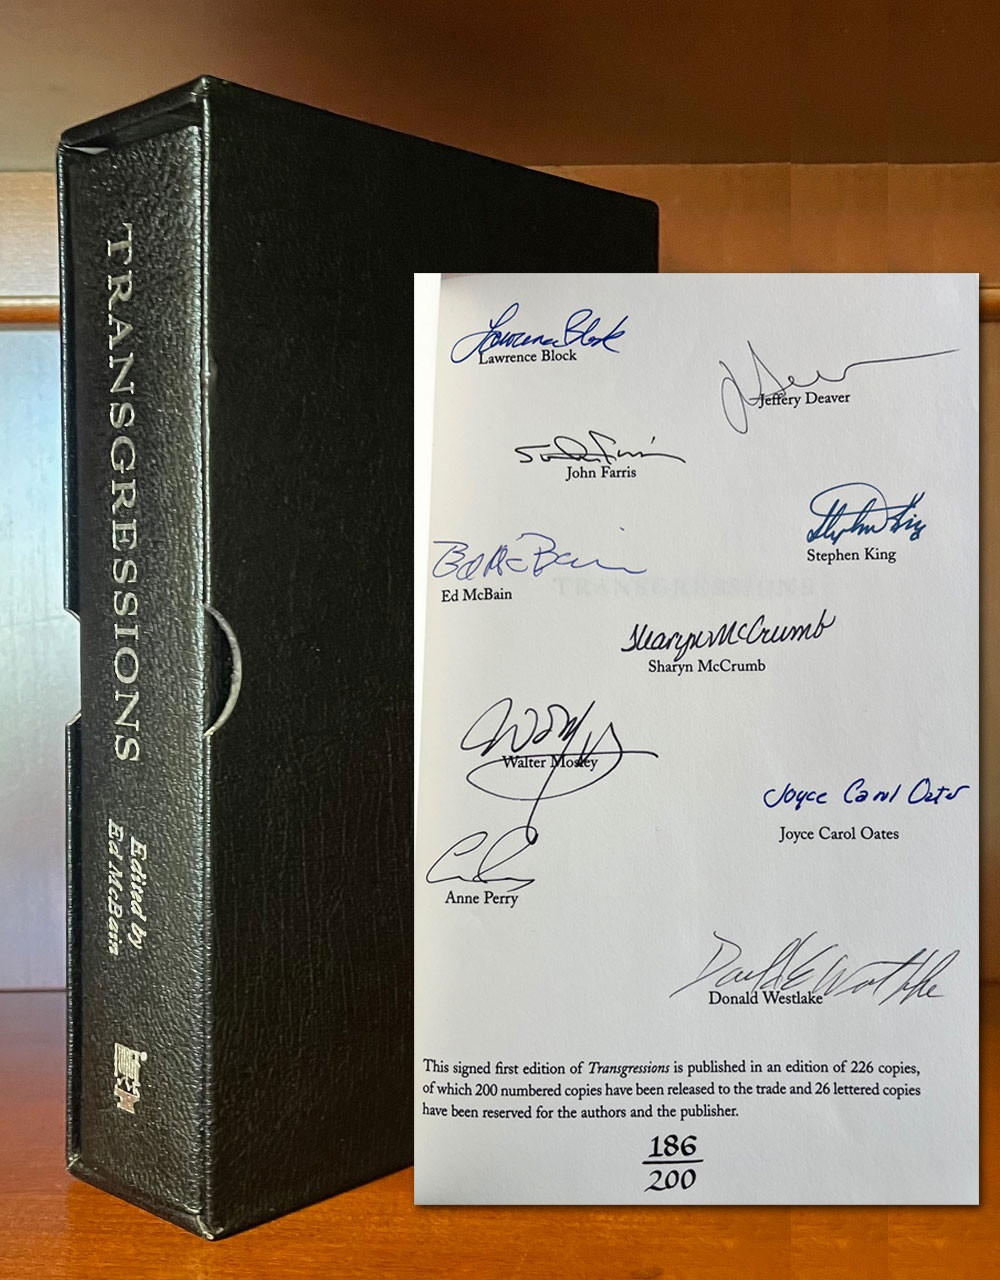 TRANSGRESSIONS
Edited by
Ed McBain
Lawrence Block
Lawrence Block
Jeffery Deaver
John Farris
John Farris
Stephen King
Stephen King
Ed McBain
Ed McBain
TRANSGRESSIONS
Sharyn McCrumb
Sharyn McCrumb
Walter Mosley
Joyce Carol Oates
Joyce Carol Oates
Anne Perry
Donald E Westlake
Donald Westlake
This signed first edition of Transgressions is published in an edition of 226 copies,
of which 200 numbered copies have been released to the trade and 26 lettered copies
have been reserved for the authors and the publisher.
186
200